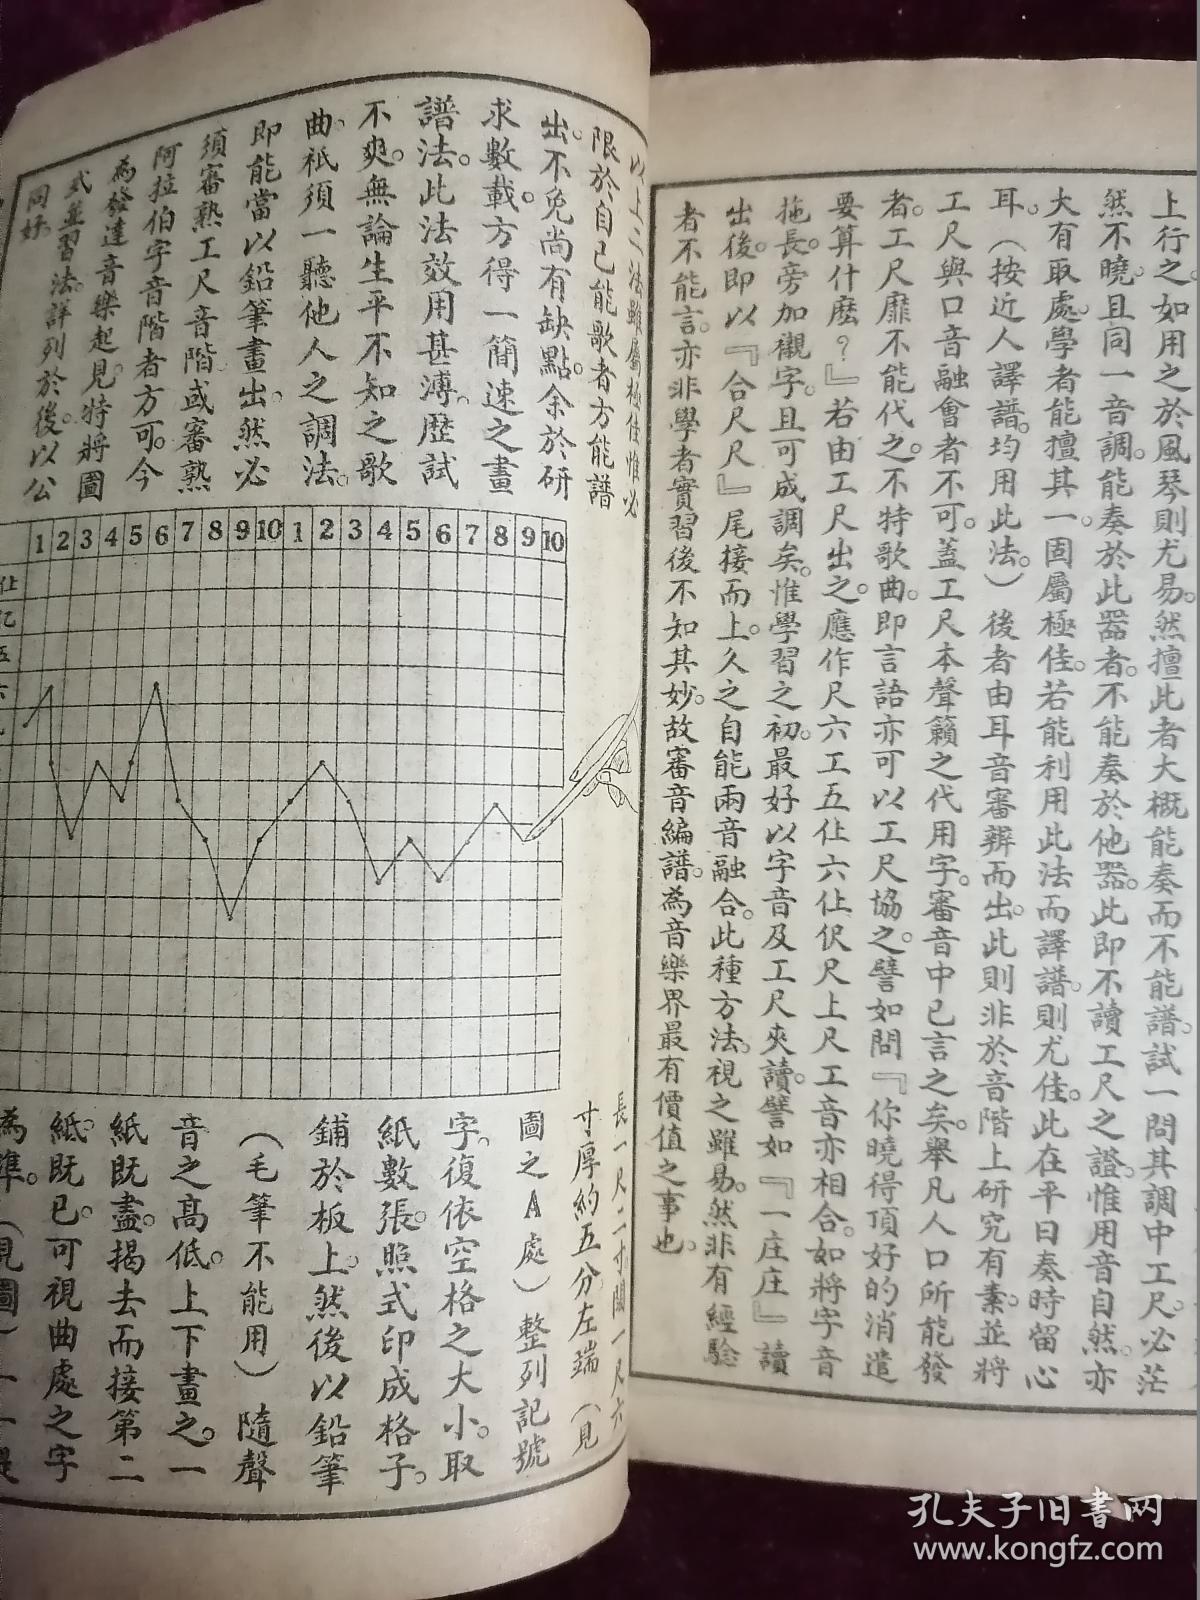 上行之。如用之於風琴則尤易。然擅此者大概能奏而不能譜。試一問其調中工尺。必茫
然不曉。且同一音調。能奏於此器者。不能奏於他器。此即不讀工尺之證。惟用音自然。亦
大有取處。學者能擅其一。固屬極佳。若能利用此法而譯譜。則尤佳。此在平日奏時留心
耳。（按近人譯譜。均用此法。）後者由耳音審辨而出。此則非於音階上研究有素。並將
工尺與口音融會者不可。蓋工尺本聲籟之代用字。審音中已言之矣。舉凡人口所能發
者。工尺靡不能代之。不特歌曲。即言語亦可以工尺協之。譬如問『你曉得頂好的消遣
要算什麽？』若由工尺出之。應作尺六工五仩六仩伬尺上尺工音亦相合。如將字音
拖長。旁加襯字。且可成調矣。惟學習之初。最好以字音及工尺夾讀。譬如『一庄庄』讀
出後。即以『合尺尺』尾接而上。久之自能兩音融合。此種方法。視之雖易。然非有經驗
者不能言。亦非學者實習後不知其妙。故審音編譜。為音樂界最有價值之事也。
以上二法雖屬極佳惟必
限於自已能歌者方能譜
出。不免尚有缺點。余於研
求數載。方得一簡速之畫
譜法。此法效用甚溥。歷試
不爽。無論生平不知之歌
曲。祇須一聽他人之調法。
即能當以鉛筆畫出。然必
須審熟工尺音階。或審熟
阿拉伯字音階者方可。今
為發達音樂起見。特將圖
式並習法。詳列於後。以公
同好。
1 2 3 4 5 6 7 8 9 10 1 2 3 4 5 6 7 8 9 10
仩
五
六
長一尺二寸闊一尺六
寸厚約五分左端（見
圖之A處）整列記號
字。復依空格之大小。取
紙數張。照式印成格子。
鋪於板上。然後以鉛筆
（毛筆不能用）隨聲
音之高低。上下畫之。一
紙既盡。揭去而接第二
紙。既已。可視曲處之字
為準。（見圖）
孔夫子旧書网
www.kongfz.com